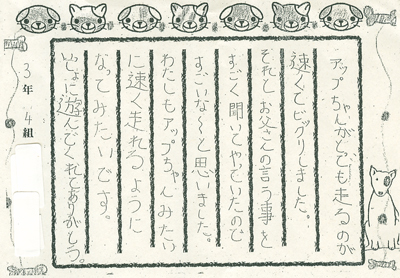 アップちゃんがとても走るのが
速くてビックリしました。
それと、お父さんの言う事を
すごく聞いてやっていたので
すごいな〜と思いました。
わたしもアップちゃんみたい
に速く走れるように
なってみたいです。
いっしょに遊んでくれてありがとう。
3年4組